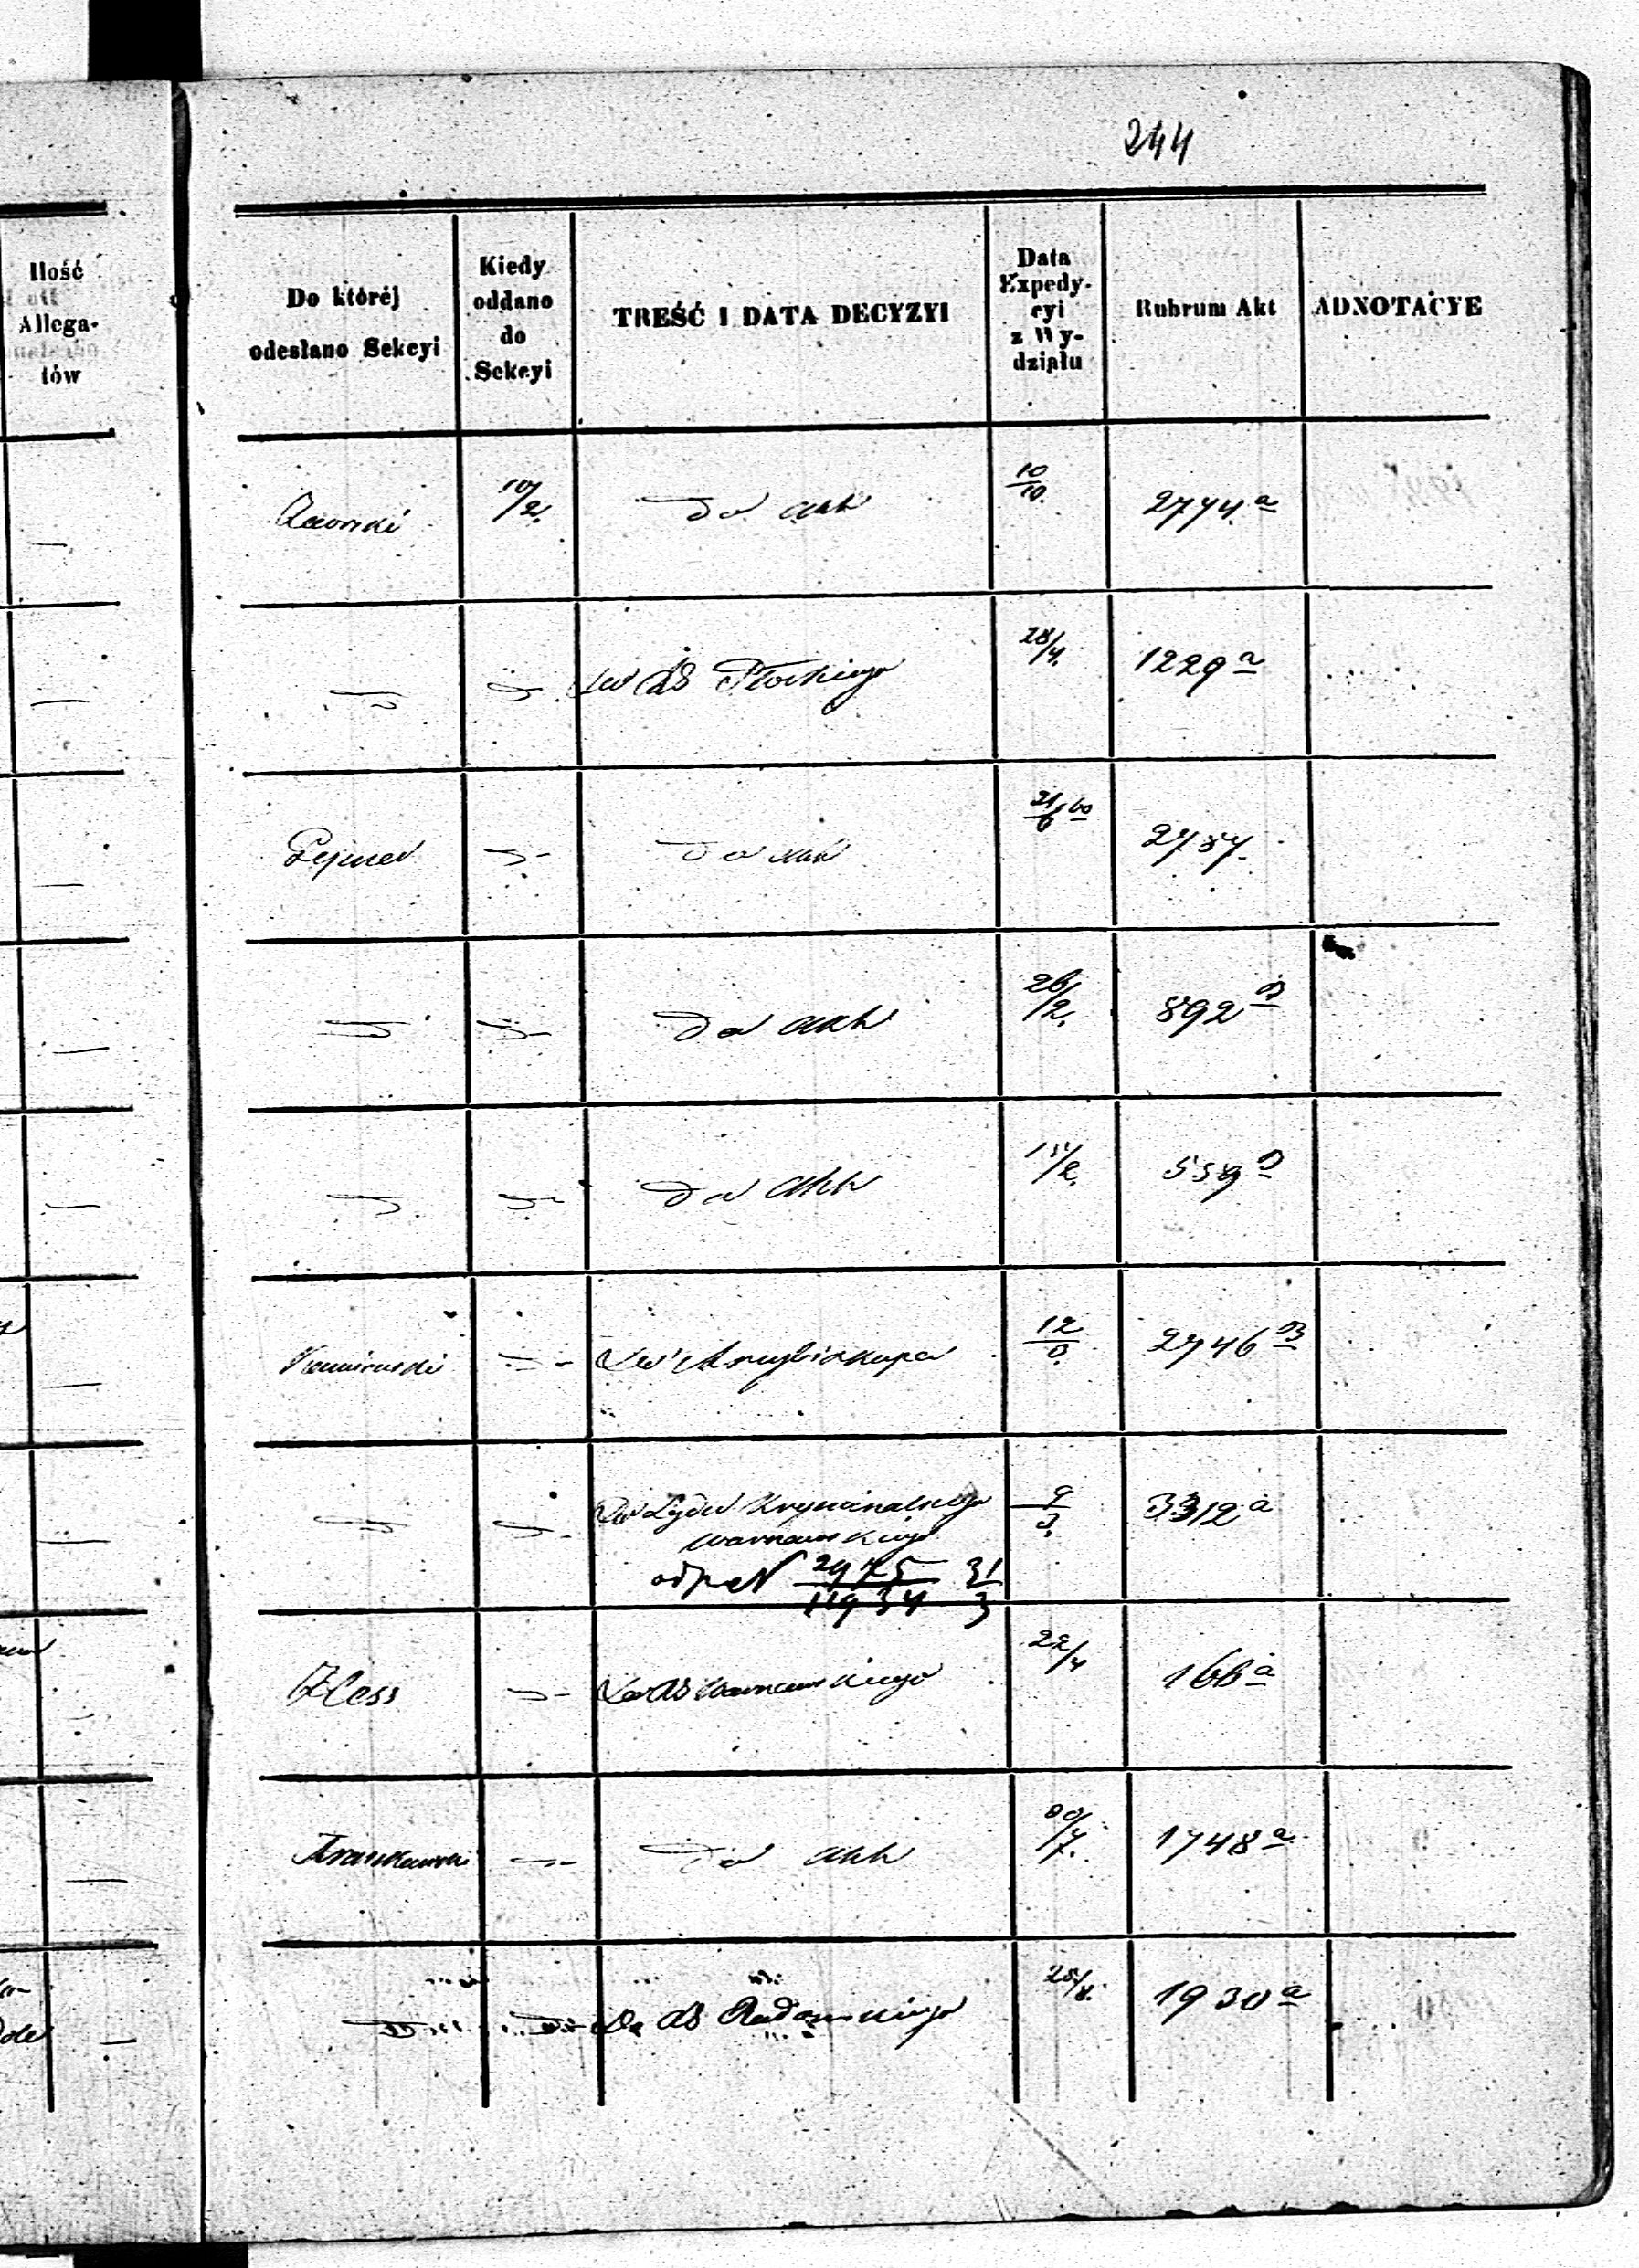 244
Ilość
Allega-
tów
Do któréj
odesłano Sekcyi
Kiedy
oddano
do
Sekcyi
TREŚĆ I DATA DECYZYI
Data
Expedy-
cyi
z Wy-
działu
Rubrum Akt
ADNOTACYE
10/2. Do akt 10/10. 2774 a
Do RG Płockiego 28/4. 1229 a
Do akt 2757.
Do akt 26/2. 892 B
Do akt 15/2. 559 B
Kamieński Do Arcybiskupa 12 2746 B
Do Sądu Kryminalnego 9/3. 3312 a
Warszawskiego
odpow 2975/11934 31/3
Hess Do RG Warszawskiego 22/4 166 a
Frankowski Do akt 1748 a
Do RG Radomskiego 25/8. 1930 a